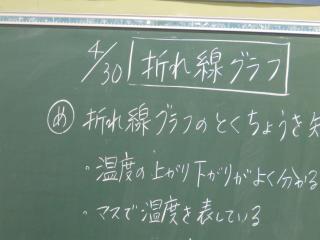 4/30 折れ線グラフ
め 折れ線グラフのとくちょうを
・温度の上がり下がりがよく分かる
・マスで温度を表している